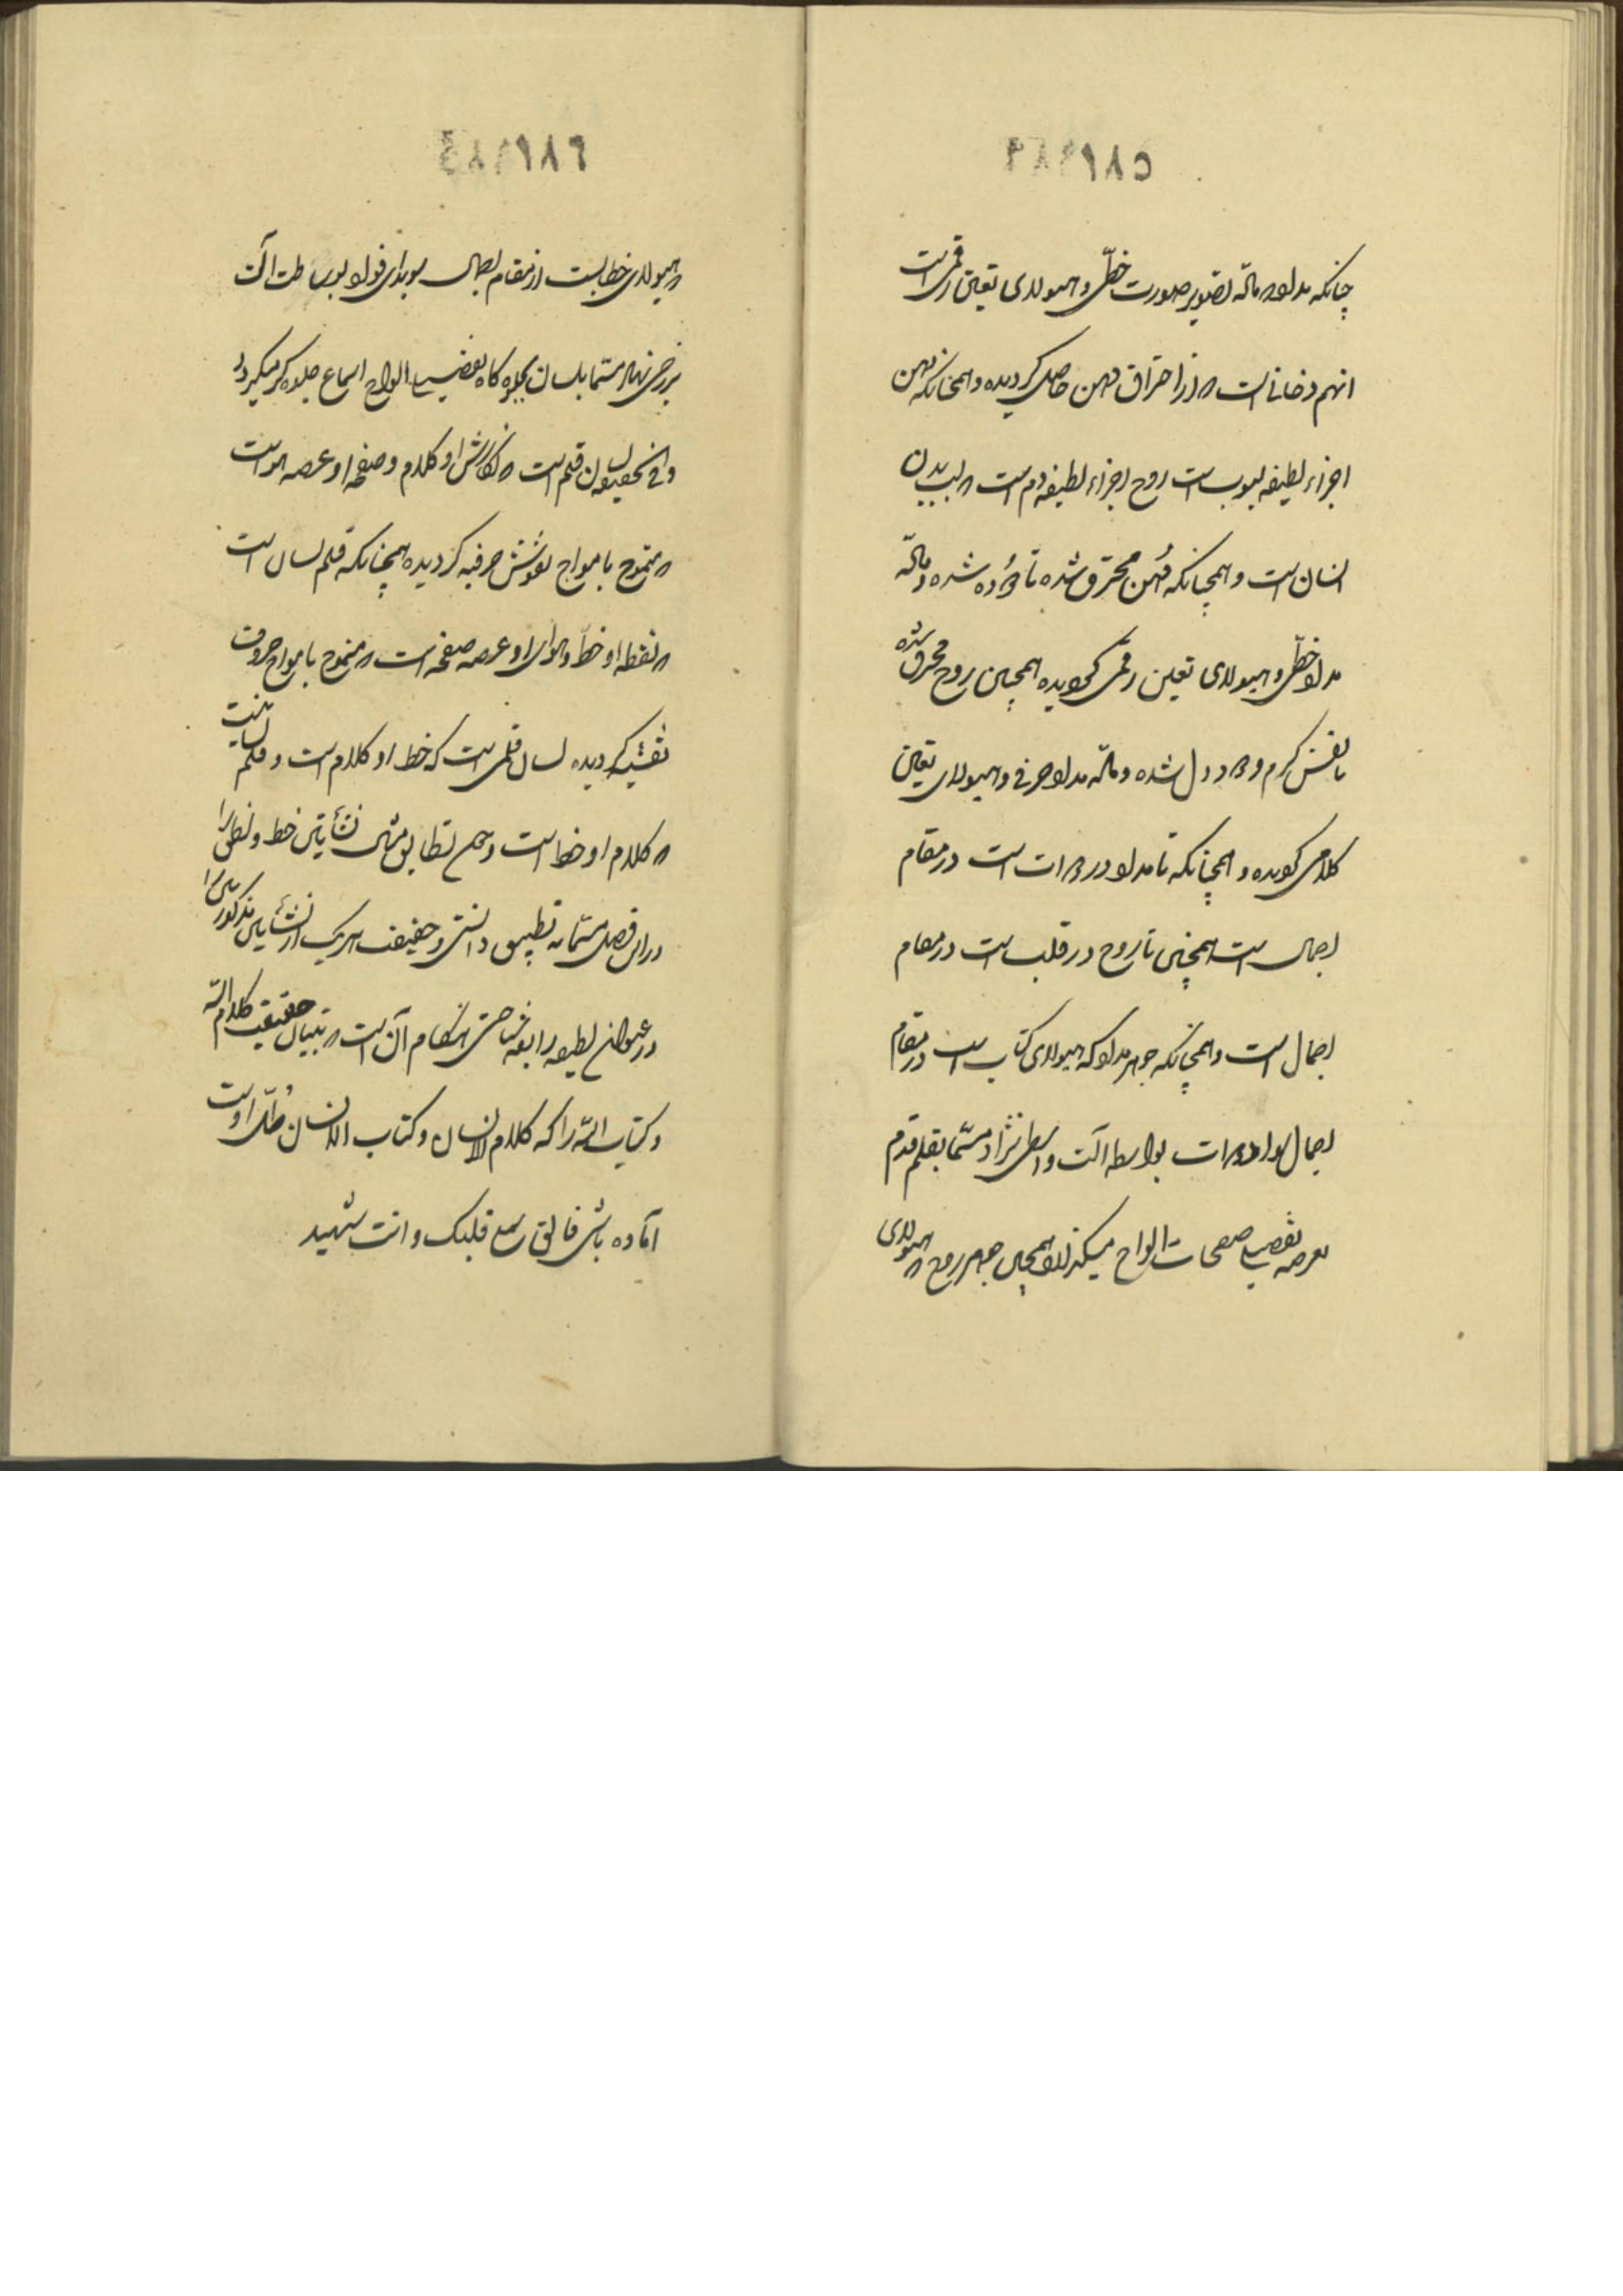 چنانکه مداد که ماده تصویر صورت خطی و هیولای تعین رقمی است
انهم دخانی است که از احتراق دهن حاصل گردیده و همچنانکه دهن
اجزاء لطیفه لبوب است روح اجزاء لطیفه دم است که لب بدن
انسان است و همچنانکه دهن محترق شده تا دوده شده و ماده
مداد خطی و هیولای تعین رقمی گردیده همچنین روح محترق شده
بانفس گرم و دود دل شده و ماده مداد حرفی و هیولای تعین
کلامی گردیده و همچنانکه تا مداد در دوات است در مقام
اجمال است همچنین تا روح در قلب است در مقام
اجمال است و همچنانکه جوهر مداد که هیولای کتاب است در مقام
اجمال دوات بواسطه آلت واسطی نژاد مسمّا بقلم قدم
بعرصه تفصیل صفحات الواح میگذارد همچنین جوهر روح که هیولای
که هیولای خطابست از مقام اجمال بواسطت آلت
برزخی نهاد مسمّا بلسان بجلوه گاه تفصیل الواح اسماع جلوه گر میگردد
و فی الحقیقه لسان قلم است که نگارش او کلام و صفحه او عرصه هواست
که متموج بامواج نقوش حرفیه گردیده همچنانکه قلم لسان است
که نقطه او خط و هوای او عرصه صفحه است که متموج بامواج حروف
نقشیه گردیده لسان قلمی است که خط او کلام است و قلم لسانیست
که کلام او خط است و تطابق نشأتین خط و نطق را
در این فصل مسمّا به تطبیق دانستی و حقیقت هریک از نشأتین مذکورتین را
در عنوان لطیفه رابعه شناختی هنگام آن است که تبیان حقیقت کلام الله
و کتاب الله را که کلام الانسان و کتاب الانسان ظلّ اوست
آماده باش فالق سمع قلبک و انت شهید